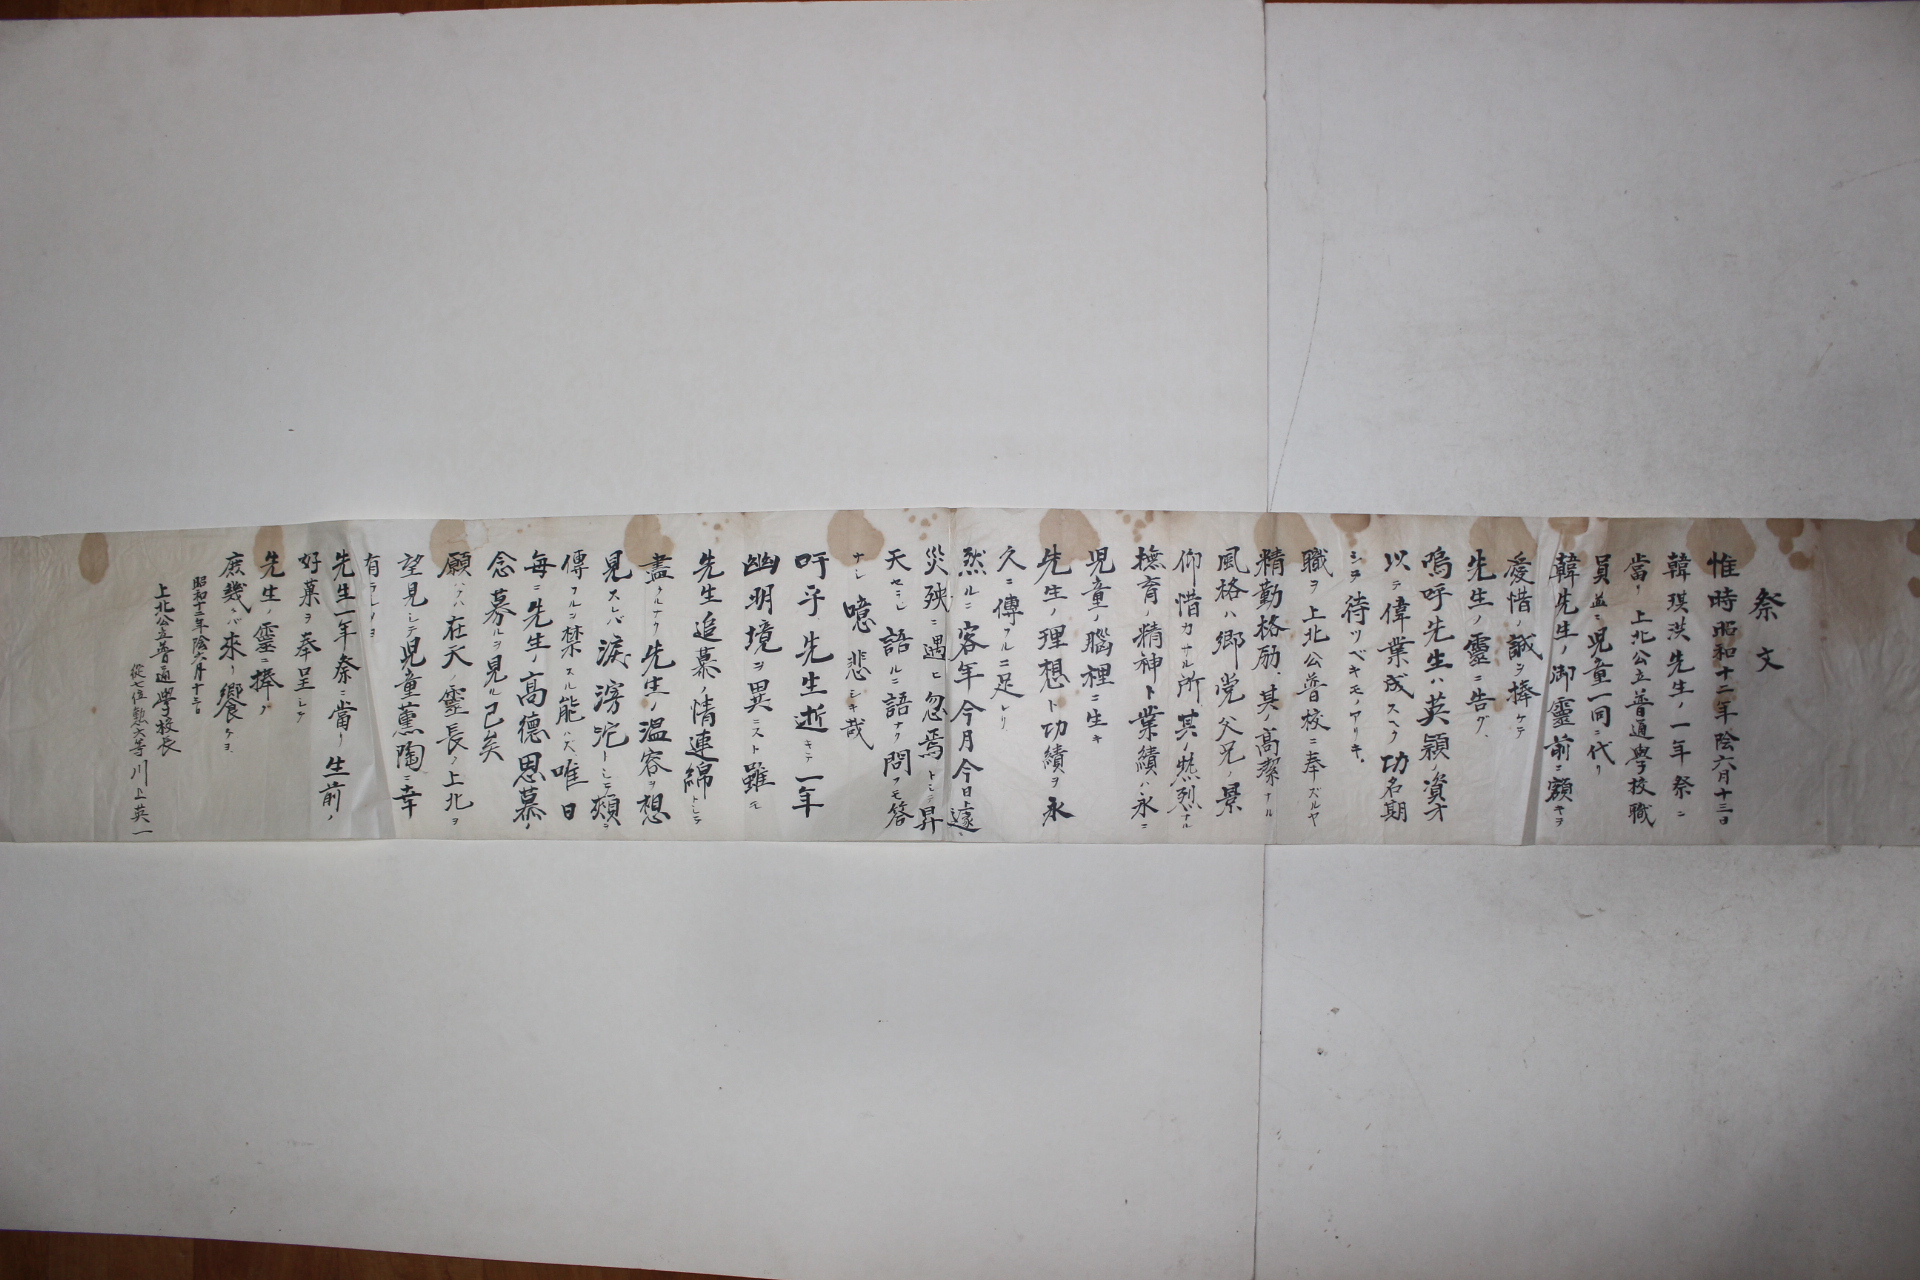 祭文
惟時昭和十二年陰六月十三日
韓琪洪先生ノ一年祭ニ
當リ上北公立普通學校職
員並ニ児童一同ニ代リ
韓先生ノ御靈前ニ額キヲ
愛惜ノ誠ヲ捧ケテ
先生ノ靈ニ告グ、
嗚呼先生ハ英穎ノ資才
以テ偉業成スヘク功名期
シヲ待ツベキモノアリキ、
職ヲ上北公普校ニ奉ズルヤ
精勤格励、其ノ高潔ナル
風格ハ郷党父兄ノ景
仰惜カナル所其ノ烈ナル
撫育ノ精神ト業績ハ永ニ
児童ノ腦裡ニ生キ
先生ノ理想ト功績ヲ永
久ニ傳フルニ足レリ
然ルニ客年今月今日遽ニ
災殃ニ遇ヒ忽焉トシテ昇
天セラレ語ルニ語ナク問フモ答
ナシ噫悲シキ哉
吁乎先生逝キテ一年
幽明境ヲ異ニスト雖モ
先生追慕ノ情連綿トシテ
盡クルナク先生ノ温容ヲ想
見スレバ涙滂沱トシテ頬ニ
傳フルヲ禁スル能ハズ唯日
毎ニ先生ノ高德恩慕ノ
念募ルヲ見ル已矣
願クハ在天ノ靈長ノ上北ヲ
望見シテ児童薫陶ニ幸
有ラレンヨ
先生一年祭ニ當リ生前ノ
好菓ヲ奉呈シテ
先生ノ靈ニ捧ク
庶幾クバ來リ饗ケヨ
昭和十二年陰六月十三日
上北公立普通學校長
從七位勲六等川上英一